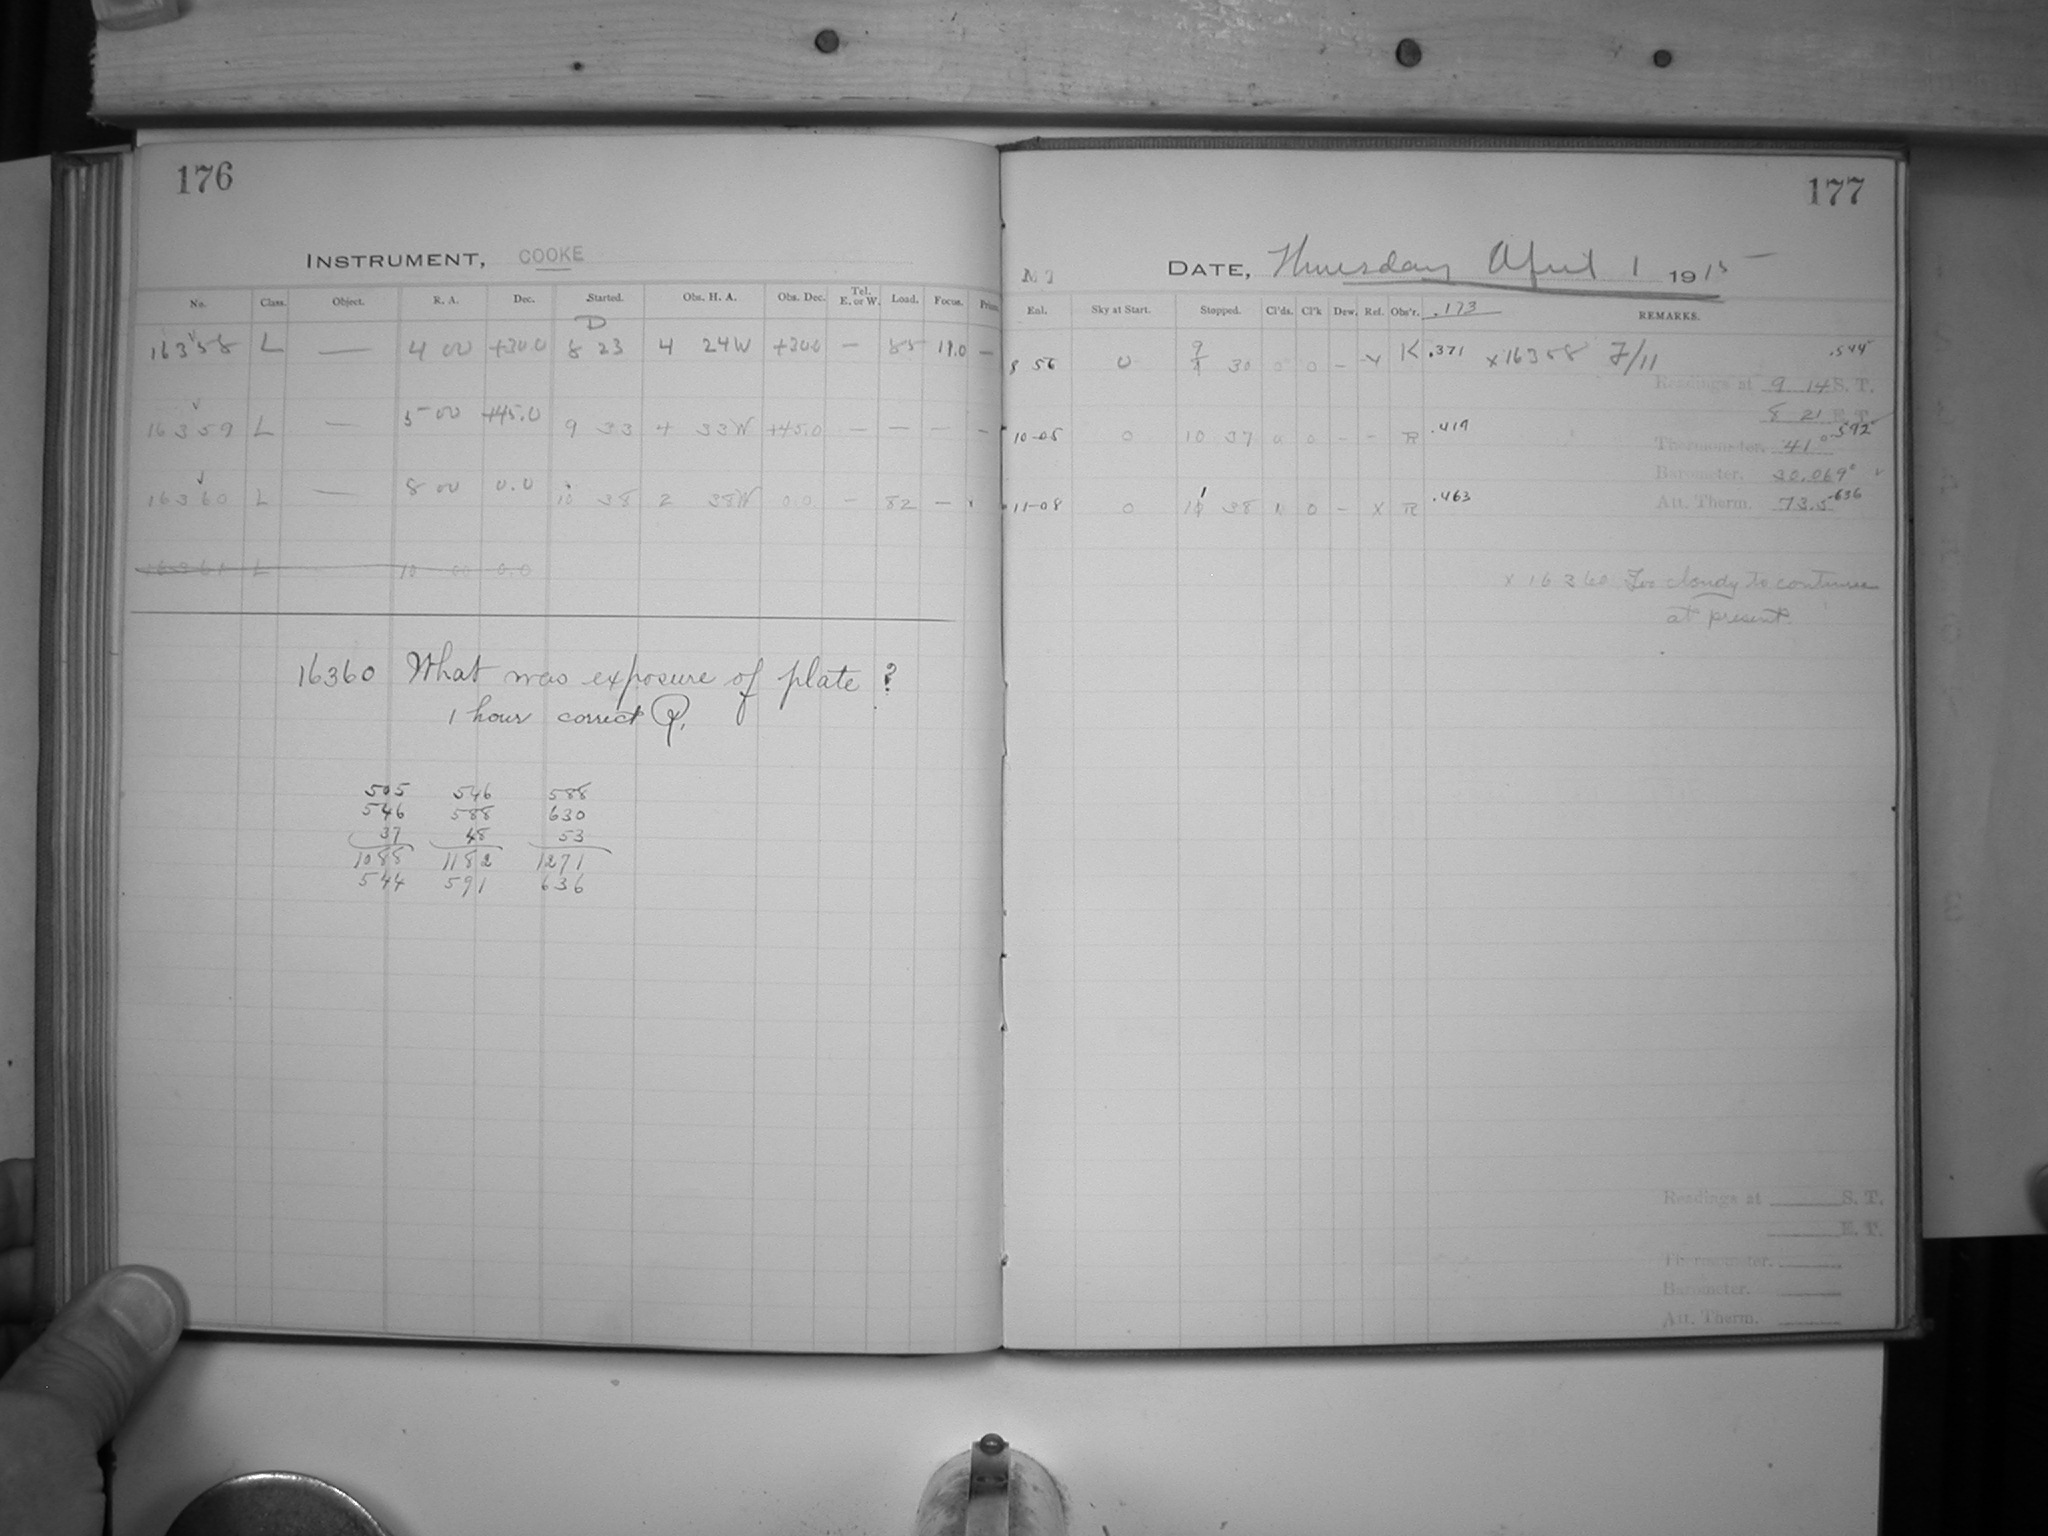 176
INSTRUMENT, COOKE
No. Class. Object. R. A. Dec. Started. Obs. H. A. Obs. Dec. Tel. E. or W. Load. Focus.
D
16358 L — 4 00 +30.0 8 23 4 24W +30.0 — 85 19.0 —
16359 L — 5 00 +45.0 9 33 4 33W +45.0 — — — —
16360 L — 8 00 0.0 10 38 2 38W 0.0 — 82 —
16361 L 10 00 0.0
16360 What was exposure of plate ?
1 hour correct
505 546 588
546 588 630
37 48 53
1088 1182 1271
544 591 636
177
DATE, Thursday April 1 1915
Enl. Sky at Start. Stopped. Cl'ds. Cl'k Dew. Ref. Obs'r. .173 REMARKS.
8 56 0 9 30 0 0 — x K .371 x16358 F/11 .544
Readings at 9 14 S. T.
8 21 E. T.
10-05 0 10 37 0 0 - - R .419 .592
Thermometer. 41°
Barometer. 30.069
11-08 0 11 38 0 - x R .463
Att. Therm. 73.5 .636
x 16360 Too cloudy to continue
at present.
Readings at S. T.
E. T.
Thermometer.
Barometer.
Att. Therm.